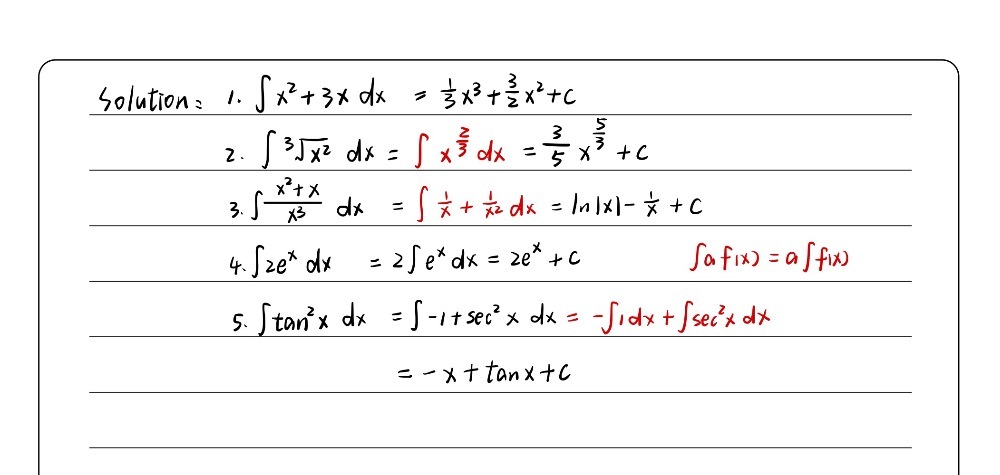 Solution: 1. ∫ x² + 3x dx = 1/3 x³ + 3/2 x² + C
2. ∫ ³√x² dx = ∫ x^(2/3) dx = 3/5 x^(5/3) + C
3. ∫ (x² + x)/x³ dx = ∫ 1/x + 1/x² dx = ln|x| - 1/x + C
4. ∫ 2eˣ dx = 2∫ eˣ dx = 2eˣ + C ∫a f(x) = a∫f(x)
5. ∫ tan² x dx = ∫ -1 + sec² x dx = -∫1 dx + ∫sec² x dx
= -x + tan x + C